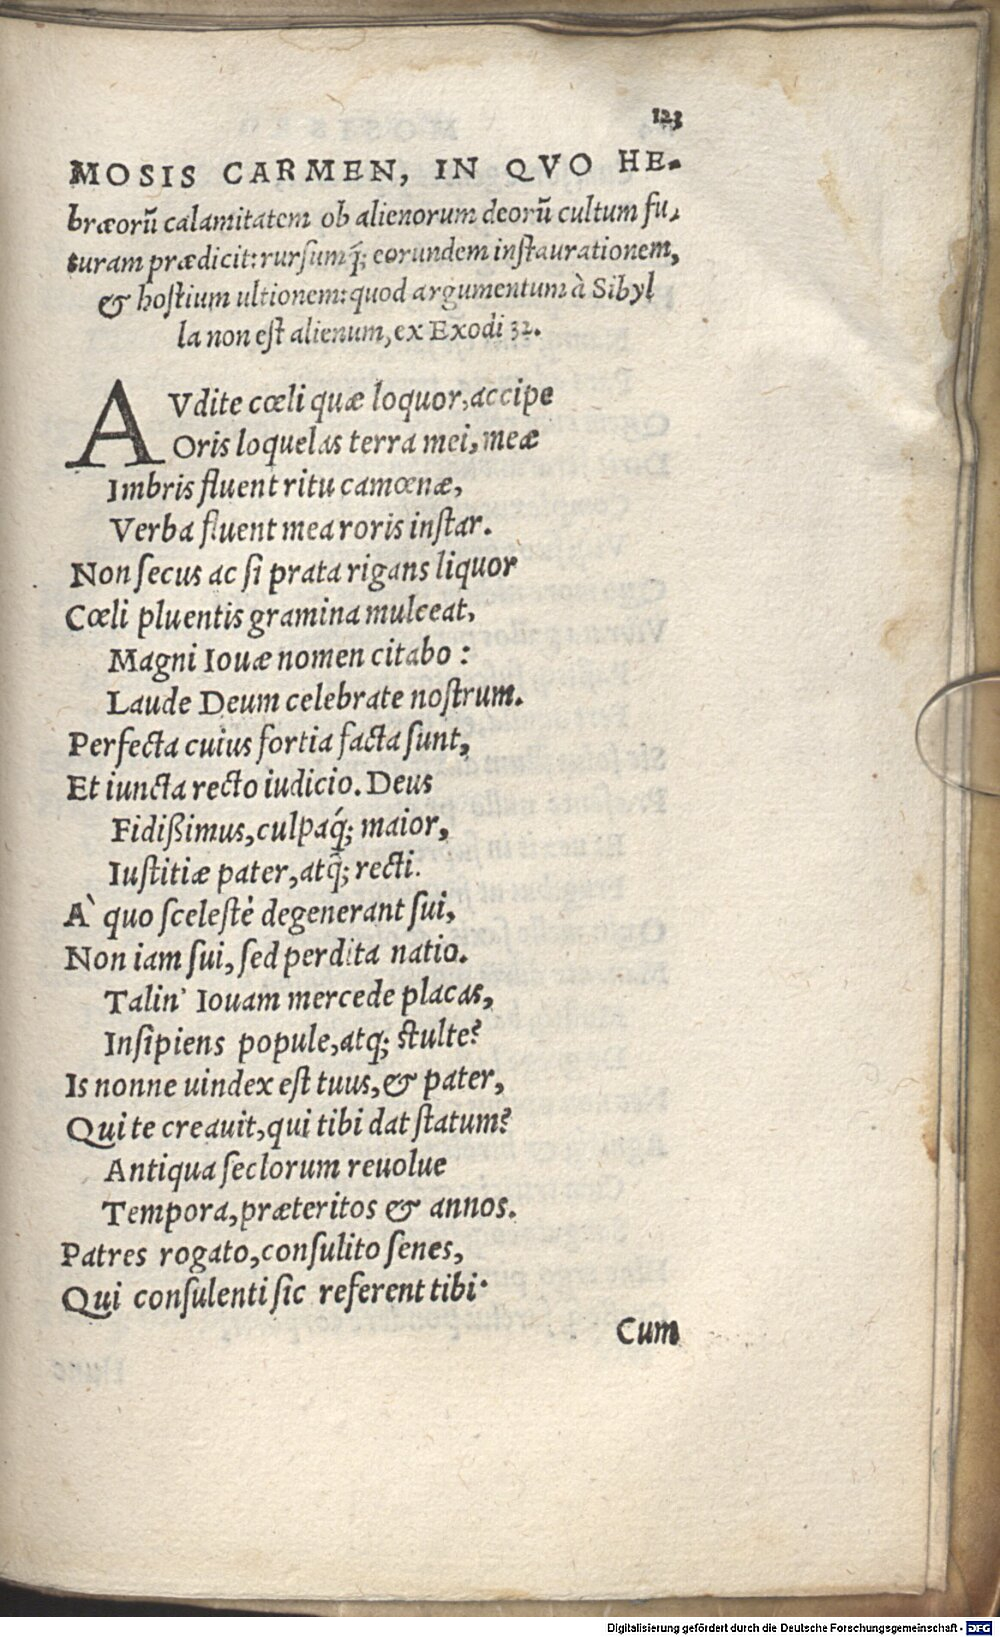 123
MOSIS CARMEN, IN QVO HE-
bræorũ calamitatem ob alienorum deorũ cultum fu-
turam prædicit: rursumq́; eorundem instaurationem,
& hostium ultionem: quod argumentum à Sibyl
la non est alienum, ex Exodi 32.
AVdite cœli quæ loquor, accipe
Oris loquelas terra mei, meæ
Imbris fluent ritu camœnæ,
Verba fluent mea roris instar.
Non secus ac si prata rigans liquor
Cœli pluentis gramina mulceat,
Magni Iouæ nomen citabo:
Laude Deum celebrate nostrum.
Perfecta cuius fortia facta sunt,
Et iuncta recto iudicio. Deus
Fidißimus, culpaq́; maior,
Iustitiæ pater, atq̃; recti.
A` quo scelestè degenerant sui,
Non iam sui, sed perdita natio.
Talin' Iouam mercede placas,
Insipiens popule, atq; stulte?
Is nonne uindex est tuus, & pater,
Qui te creauit, qui tibi dat statum?
Antiqua seclorum reuolue
Tempora, præteritos & annos.
Patres rogato, consulito senes,
Qui consulenti sic referent tibi·
Cum
Digitalisierung gefördert durch die Deutsche Forschungsgemeinschaft - DFG